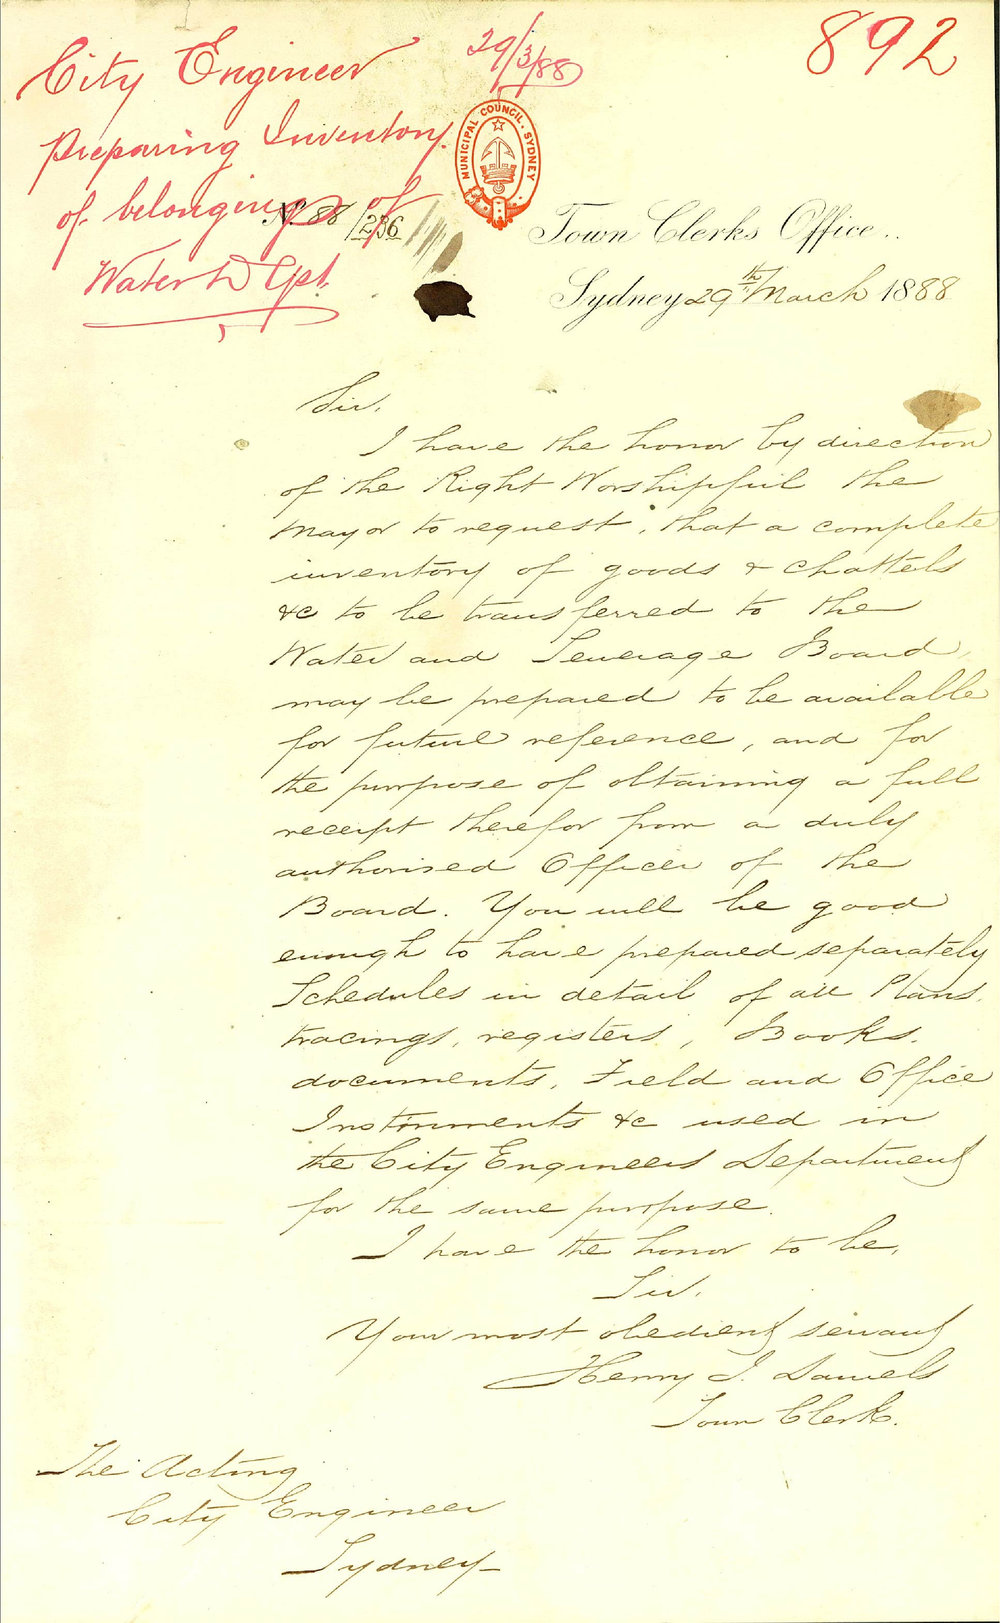 City Engineer
29/3/88
892
Preparing Inventory
of belongings of
Water Dept.
MUNICIPAL COUNCIL. SYDNEY
No. 88/236
Town Clerks Office..
Sydney 29th March 1888
Sir,
I have the honor by direction
of the Right Worshipful the
Mayor to request, that a complete
inventory of goods & chattels
&c to be transferred to the
Water and Sewerage Board,
may be prepared to be available
for future reference, and for
the purpose of obtaining a full
receipt therefor from a duly
authorised Officer of the
Board. You will be good
enough to have prepared separately
Schedules in detail of all Plans,
tracings, registers, Books,
documents, Field and Office
Instruments &c used in
the City Engineers Department
for the same purpose.
I have the honor to be,
Sir,
Your most obedient servant
Henry J. Daniels
Town Clerk.
The Acting
City Engineer
Sydney